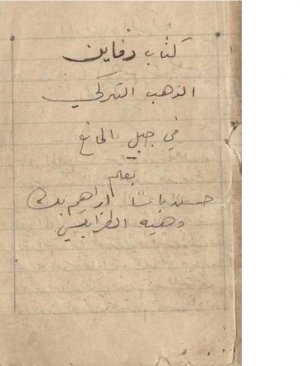 كتاب دفاين
الذهب التركي
في جبل المانع
بقلم
حسين باشا ابراهيم بك
وهبه الطرابلسي